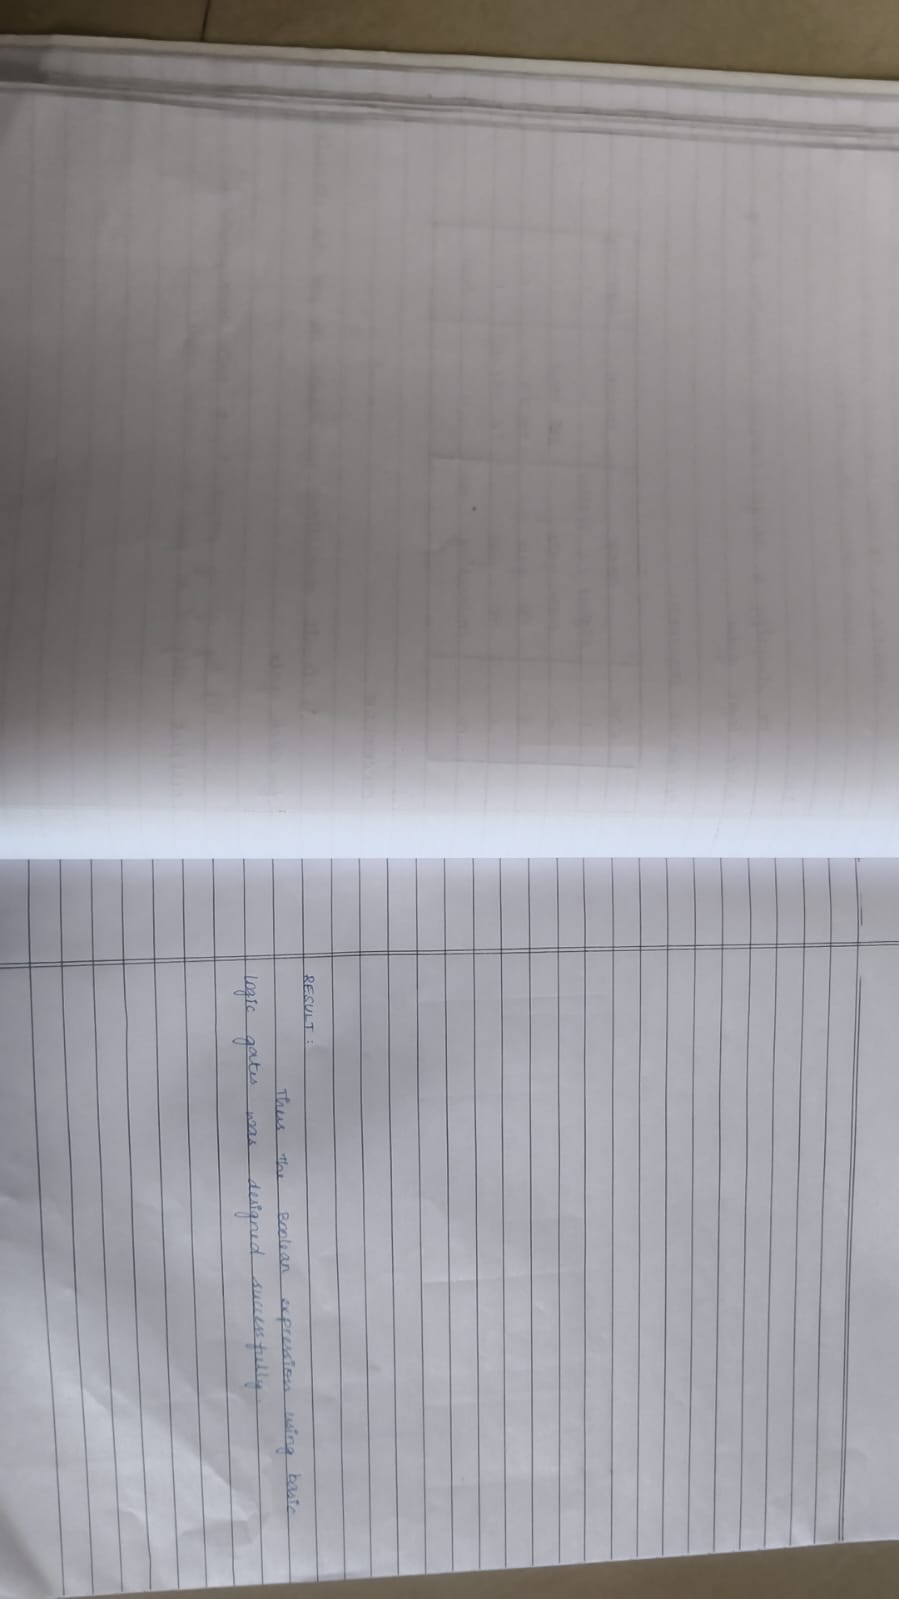 RESULT :
Thus the Boolean expression using basic
logic gates was designed successfully.